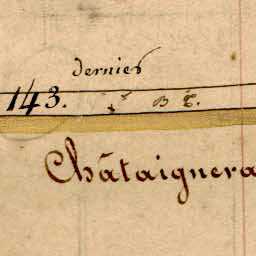 dernies
143. B C.
Châtaignera